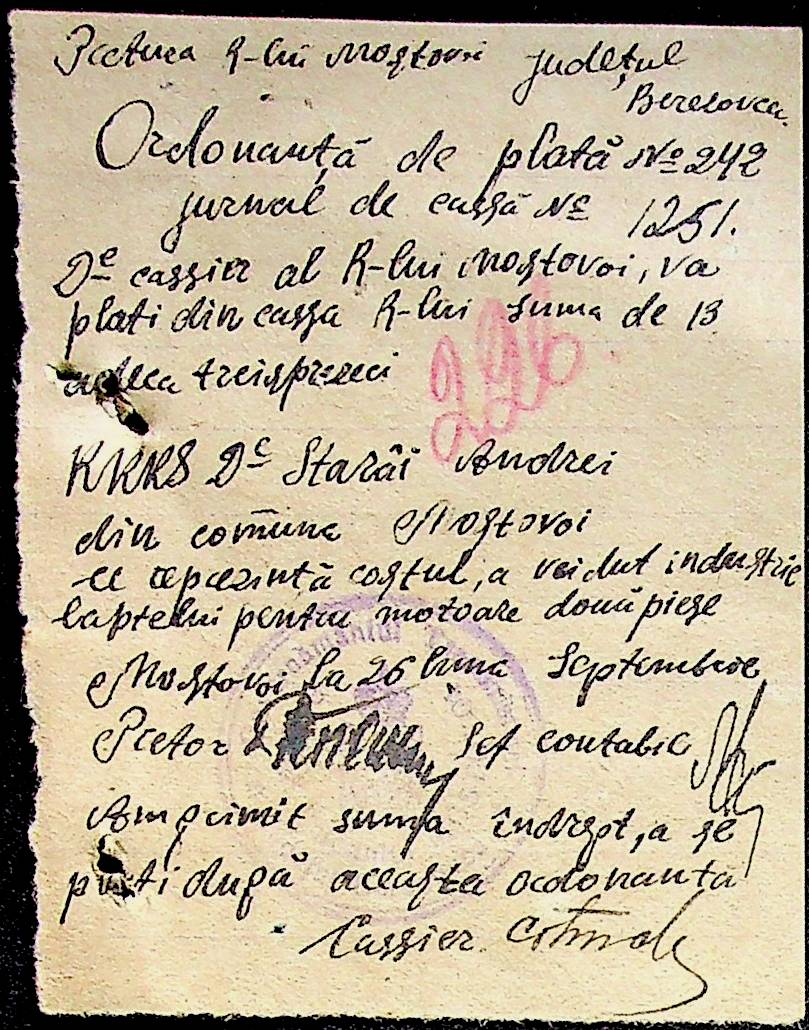 Pretura R-lui Moştovoi Judeţul
Berezovca.
Ordonanţă de plată № 242
jurnal de cassă № 1251.
Dl cassier al R-lui Moştovoi, va
plati din cassa R-lui suma de 13
adeca treisprezeci
226.
RKKS Dl Starâi Andrei
din comuna Moştovoi
ce reprezintă costul, a veidut industrie
laptelui pentru motoare două piese
Moştovoi la 26 luna Septembrie
Pretor Şef contabil
Am primit suma îndrept, a se
plati după aceasta ordonanta
Cassier